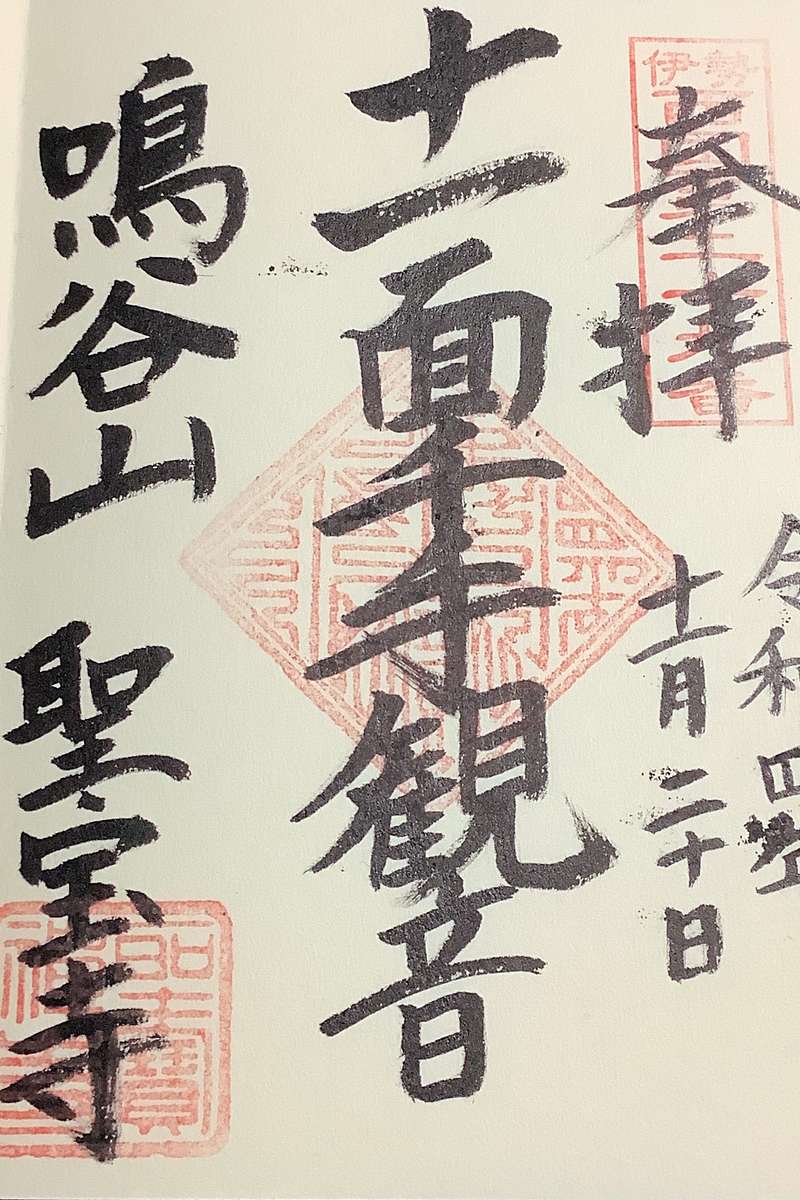 伊勢
奉拝
令和四年
十一月二十日
十一面千手観音
鳴谷山 聖宝寺